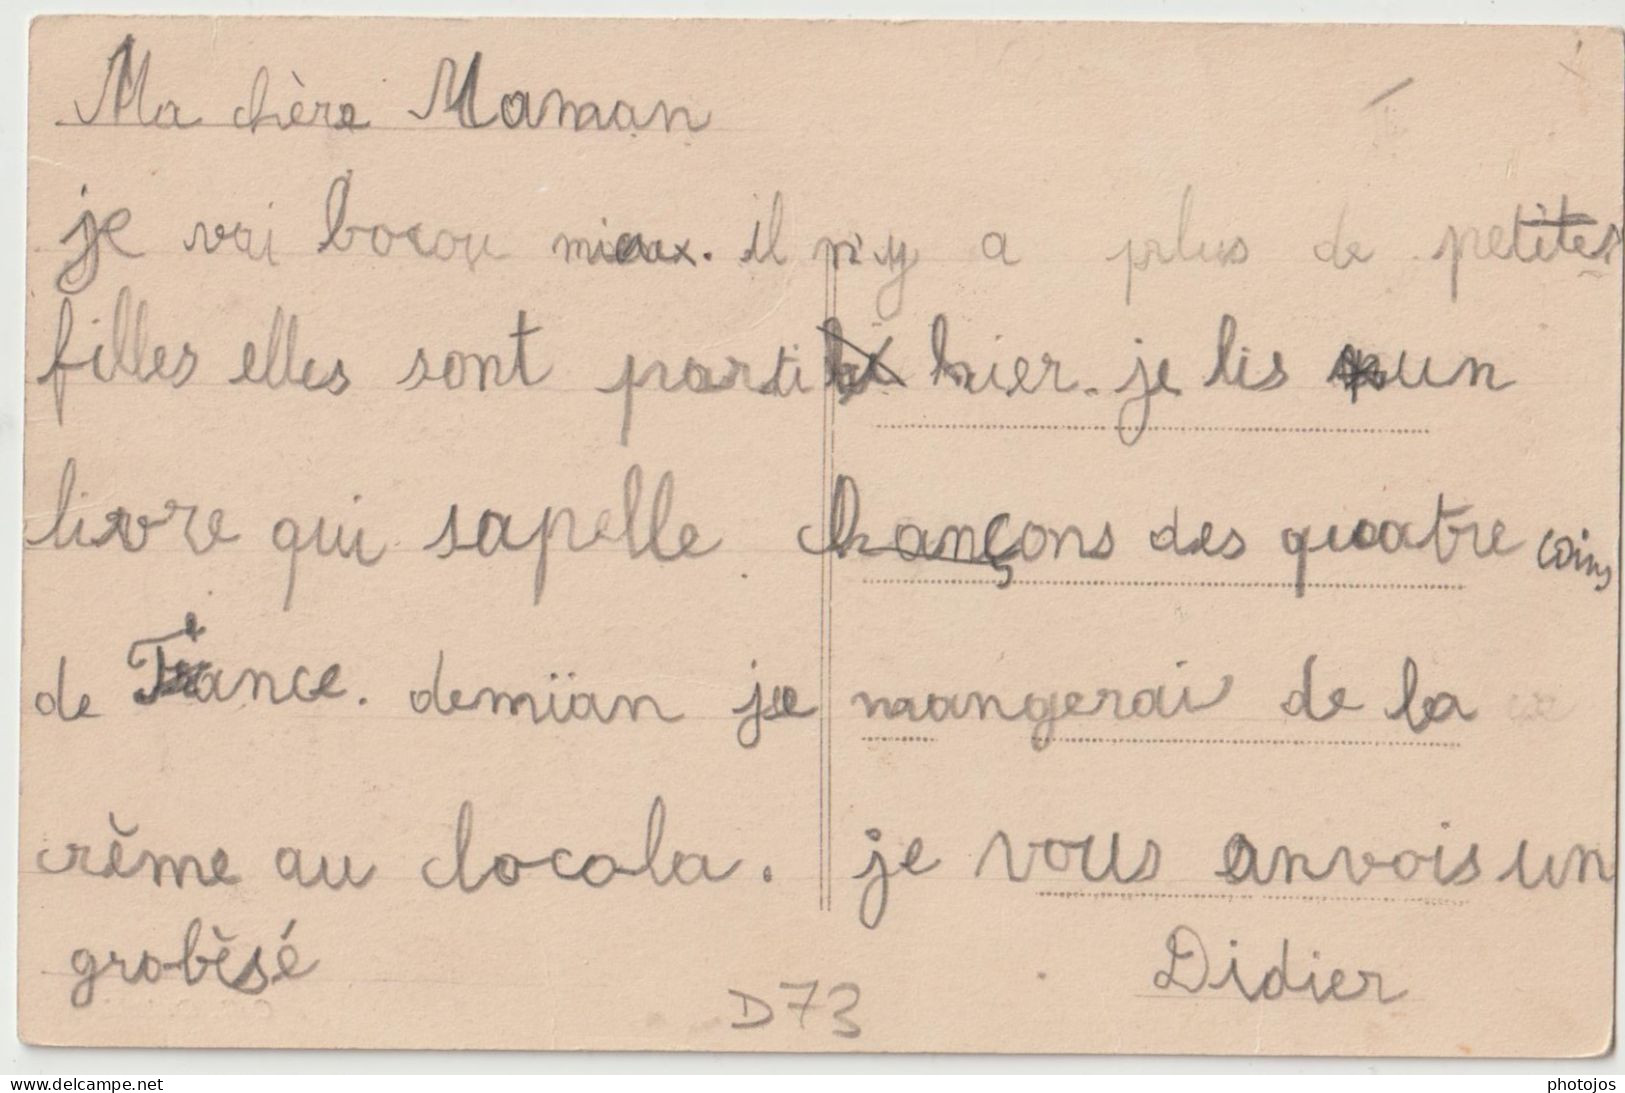 Ma chère Maman
je vai bocou mieux. il n'y a plus de petites
filles elles sont parti hier. je lis un
livre qui sapelle chançons des quatre coins
de France. demïan je mangerai de la
crème au clocola. je vous anvois un
grobèsé Didier
D73
www.delcampe.net photojos